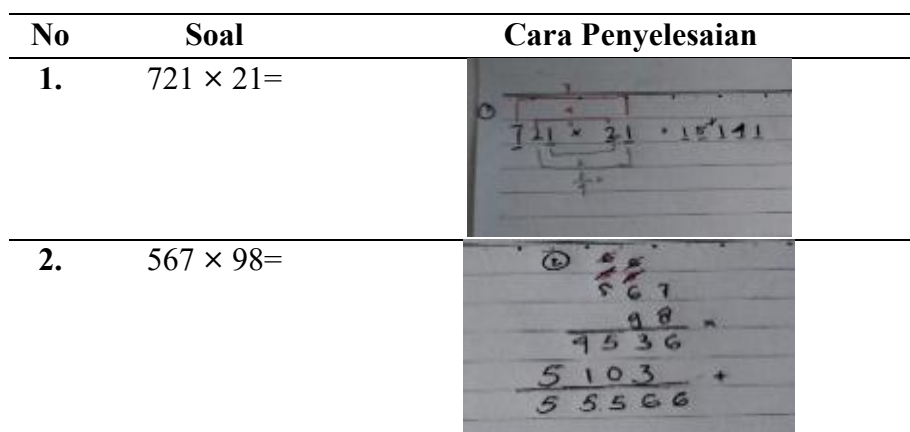 No Soal Cara Penyelesaian
1. 721 × 21=
7 21 × 21 · 15141
2. 567 × 98=
②
567
98 ×
4536
5103 +
55566